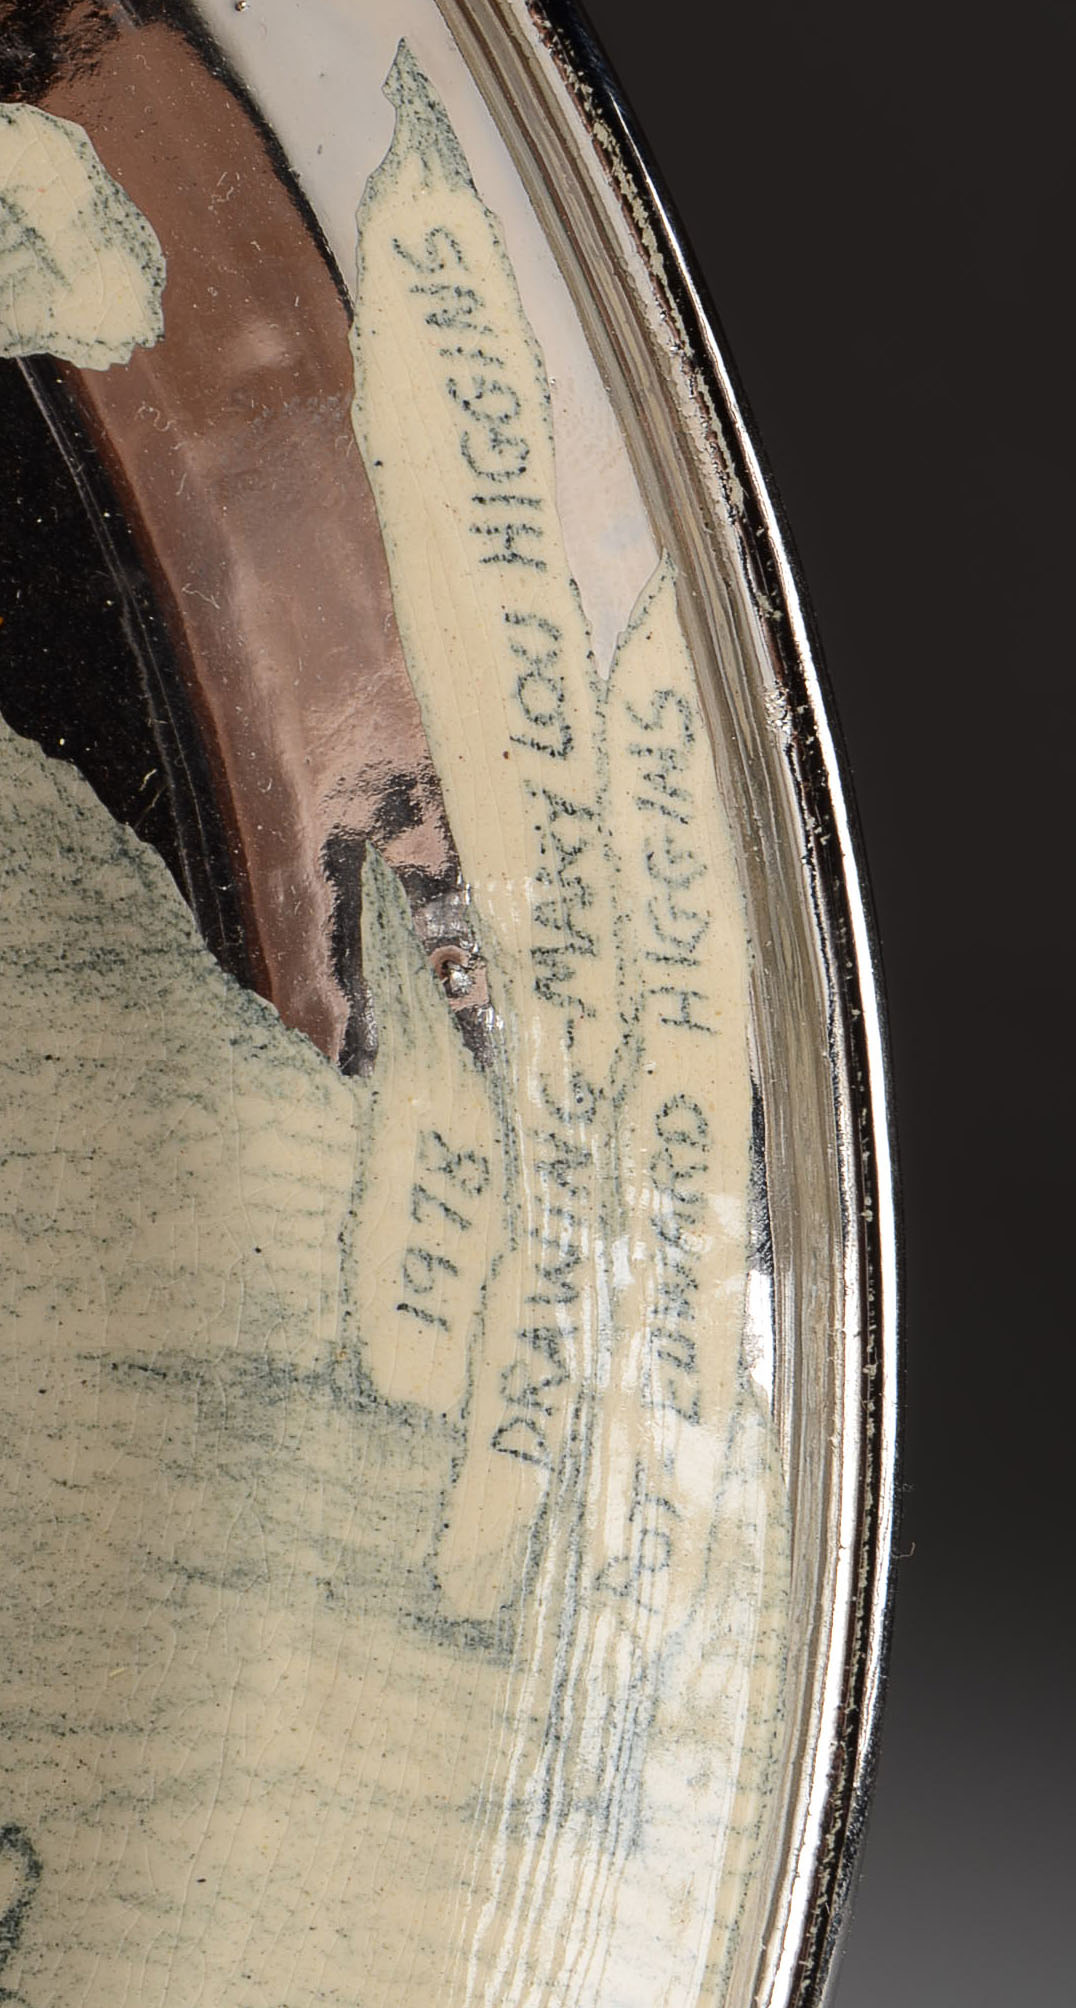 1978
DRAWING - MARY LOU HIGGINS
POT - EDWARD HIGGINS